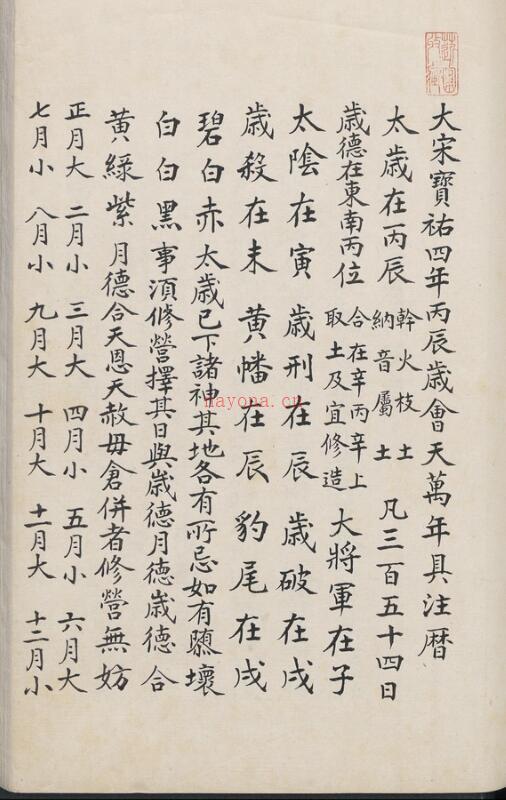 大宋寶祐四年丙辰歲會天萬年具注曆
太歲在丙辰 幹火枝土 納音屬土 凡三百五十四日
歲德在東南丙位 合在辛丙辛上 取土及宜修造 大將軍在子
太陰在寅 歲刑在辰 歲破在戌
歲殺在未 黃幡在辰 豹尾在戌
碧白赤 太歲已下諸神其地各有所忌如有隳壞
白白黑 事須修營擇其日與歲德月德歲德合
黃綠紫 月德合天恩天赦毋倉併者修營無妨
正月大 二月小 三月大 四月小 五月小 六月大
七月小 八月小 九月大 十月大 十一月大 十二月小
hayona.cn